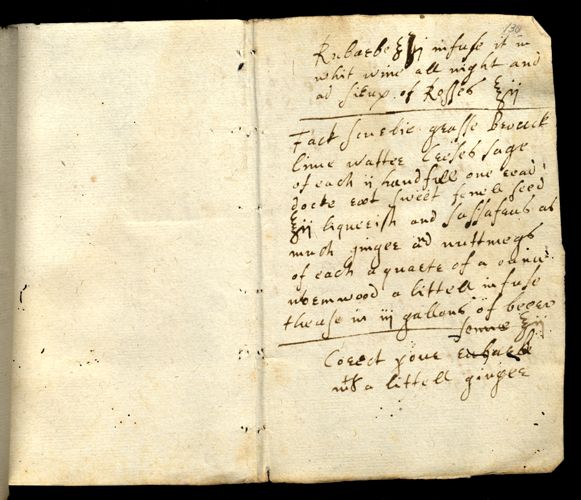 130
Rubarbe ℥ij infuse it in
whit wine all night and
ad sirup of Roses ℥ij
Tack scurvie grasse Brouck
lime watter Creses sage
of each ij handfull one read
docke root sweet fenell seed
℥ij liquerish and sassafras as
much ginger and nuttmegs
of each a quarte of a ounc
wormwood a littell infuse
thease in iij gallons of beeer
senne ℥ij
Corect your rubarbe
with a littell ginger